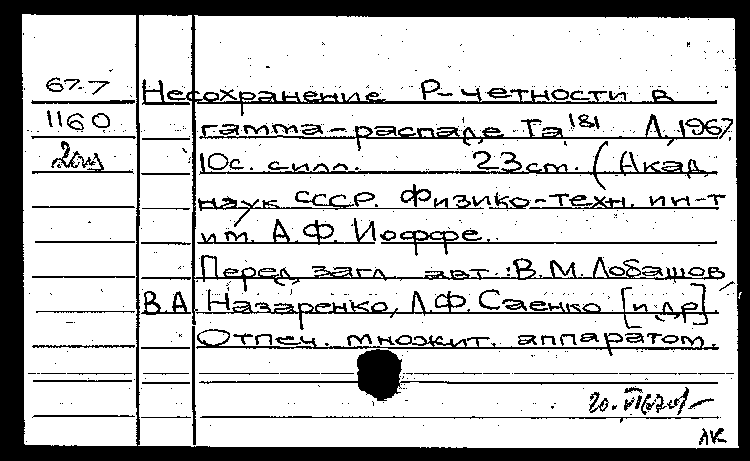 67-7 Несохранение Р-четности в
1160 гамма-распаде Ta¹⁸¹. Л., 1967.
2экз 10с. с илл. 23см. (Акад.
наук СССР. Физико-техн. ин-т
им. А.Ф. Иоффе.
Перед загл. авт.: В.М. Лобашов,
В.А. Назаренко, Л.Ф. Саенко [и др].
Отпеч. множит. аппаратом.
20.VI67